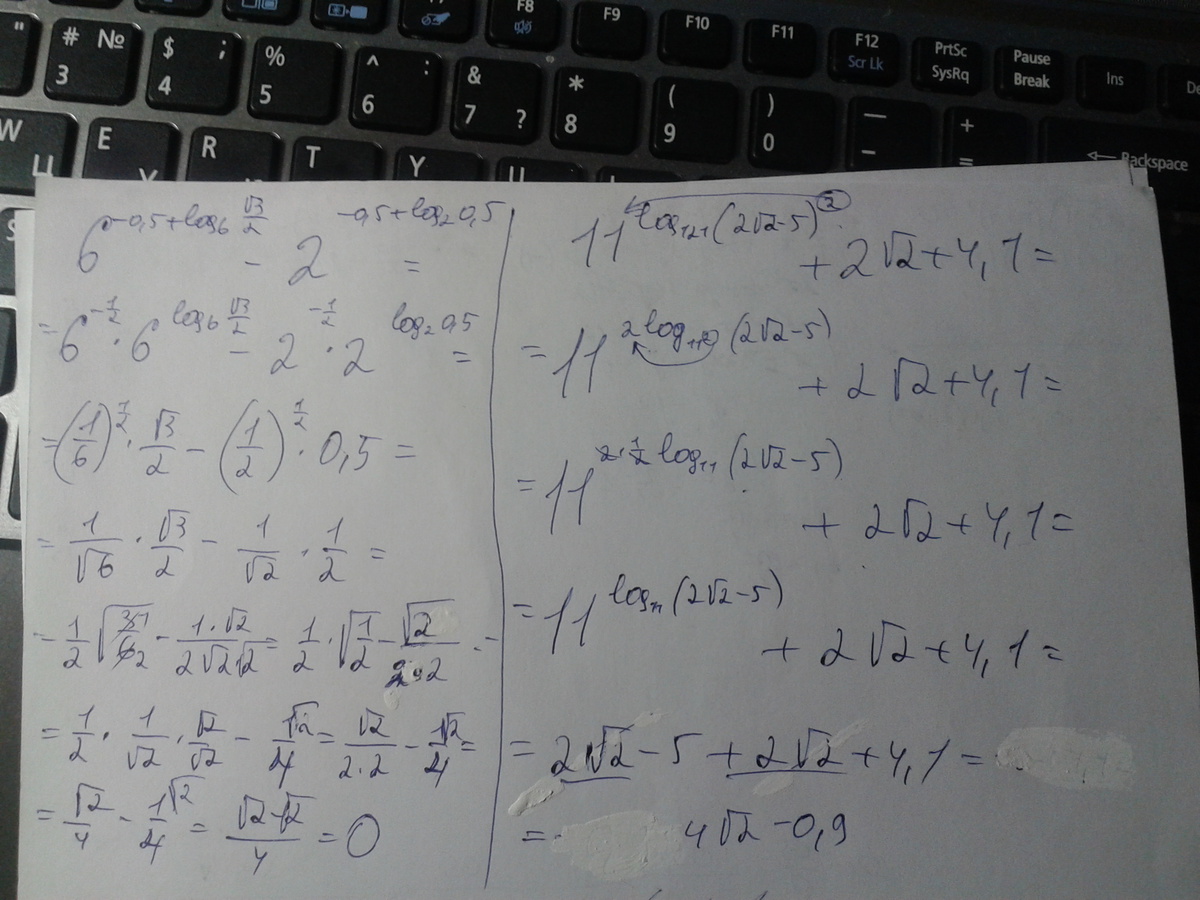 F8 F9 F10 F11 F12 Scr Lk PrtSc SysRq Pause Break Ins
" # № 3 $ ; 4 % 5 ^ : 6 & 7 ? * 8 ( 9 ) 0 — - + = ← Backspace
W Ц E R T Y
6^(-0,5+log₆ √3/2) - 2^(-0,5+log₂ 0,5) =
= 6^(-1/2) · 6^(log₆ √3/2) - 2^(-1/2) · 2^(log₂ 0,5) =
= (1/6)^(1/2) · √3/2 - (1/2)^(1/2) · 0,5 =
= 1/√6 · √3/2 - 1/√2 · 1/2 =
= 1/2 √(3 1/6 2) - 1·√2/2√2√2 = 1/2 · √(1/2) - √2/2·2 =
= 1/2 · 1/√2 · √2/√2 - √2/4 = √2/2·2 - √2/4 =
= √2/4 - √2/4 = √2-√2/4 = 0
11^(log₁₂₁(2√2-5)²) + 2√2+4,1 =
= 11^(2log₁₁²(2√2-5)) + 2√2+4,1 =
= 11^(2·1/2 log₁₁(2√2-5)) + 2√2+4,1 =
= 11^(log₁₁(2√2-5)) + 2√2+4,1 =
= 2√2-5+2√2+4,1 =
= 4√2-0,9